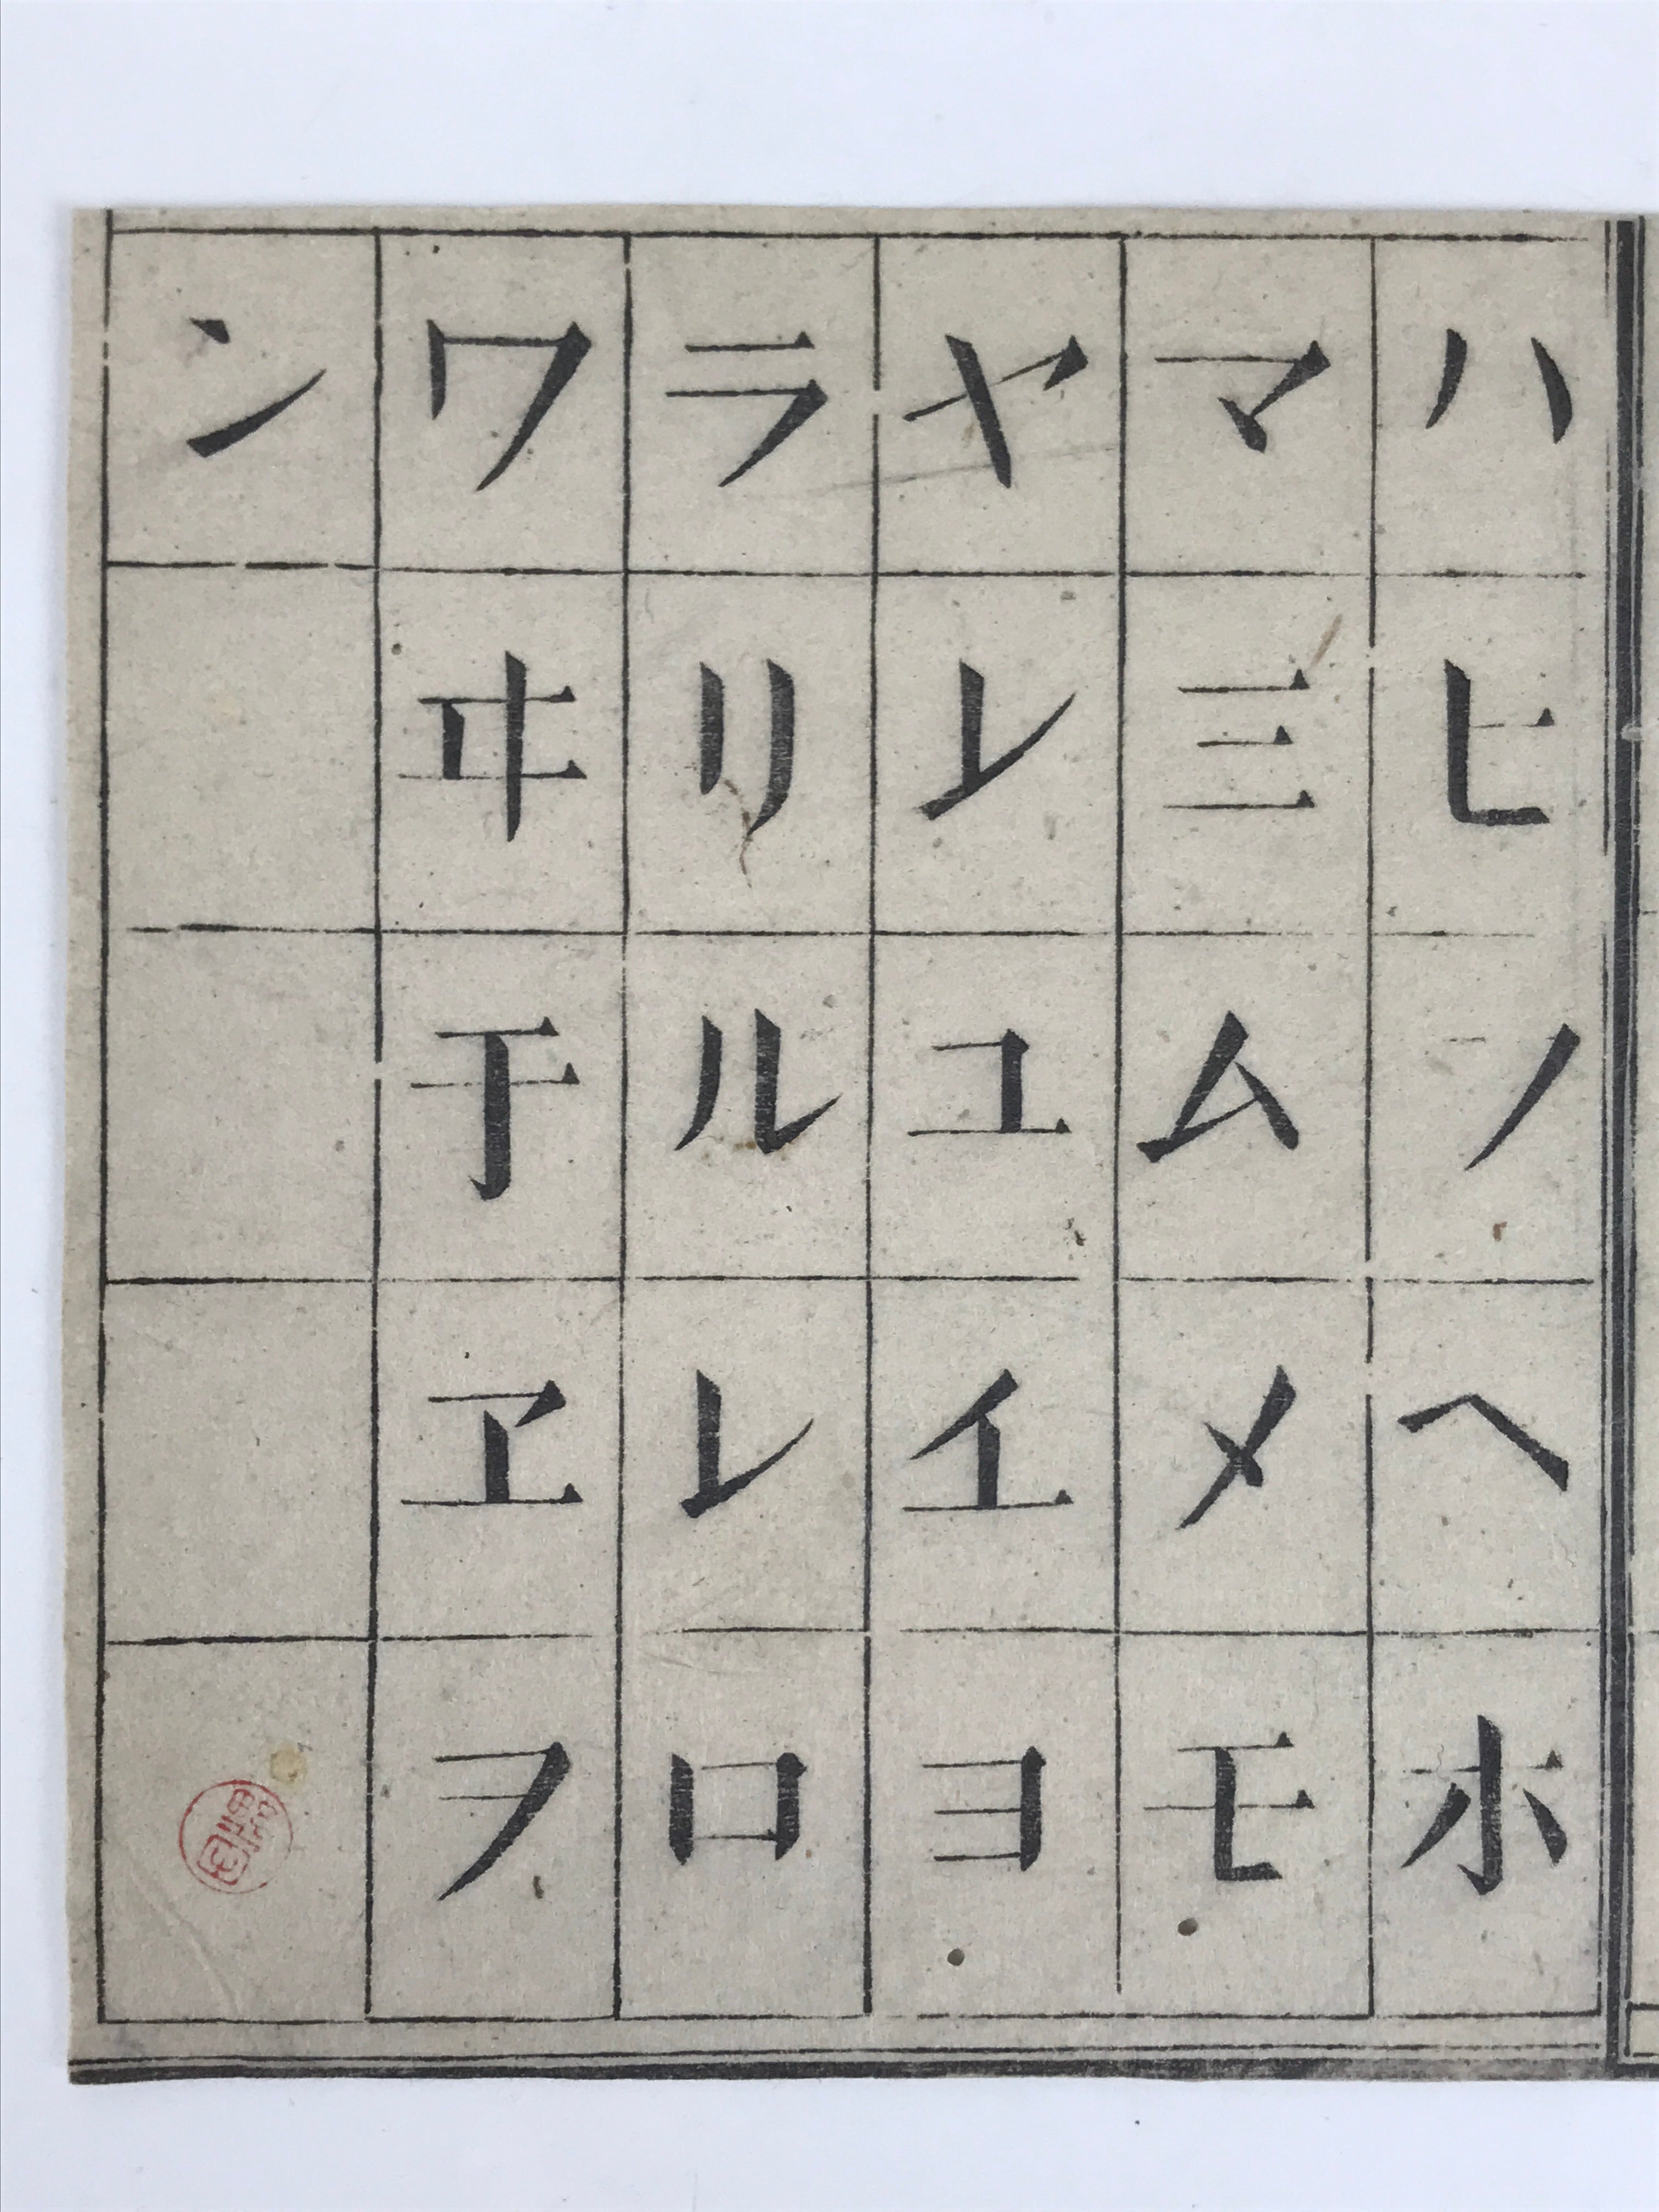 ハヒフヘホ
マミムメモ
ヤ𛄠ユ𛄡ヨ
ラリルレロ
ワヰ𛄢ヱヲ
ン